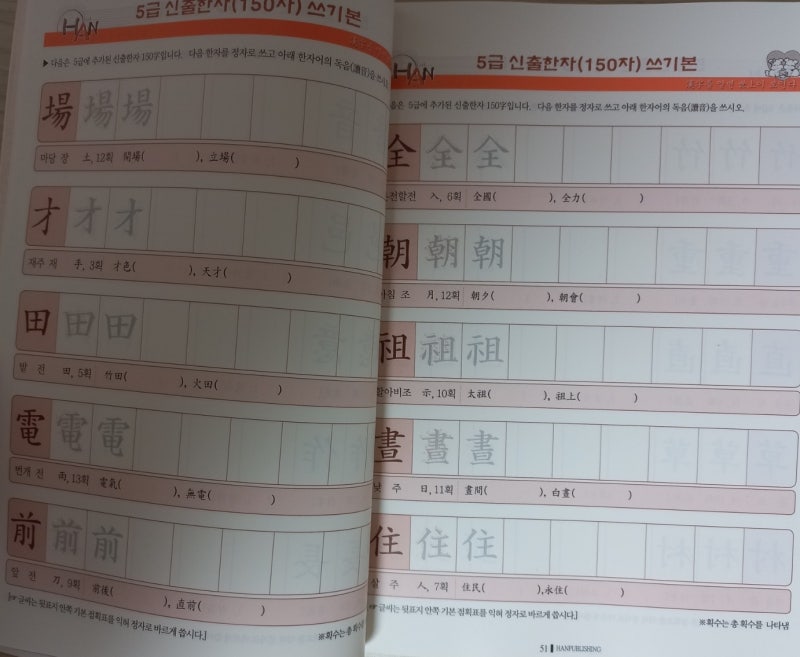 5급 신출한자(150자) 쓰기본
HAN
▶다음은 5급에 추가된 신출한자 150字입니다. 다음 한자를 정자로 쓰고 아래 한자어의 독음(讀音)을 쓰시오.
場 場 場
마당 장 土, 12획 開場( ), 立場( )
才 才 才
재주 재 手, 3획 才色( ), 天才( )
田 田 田
밭 전 田, 5획 竹田( ), 火田( )
電 電 電
번개 전 雨, 13획 電氣( ), 無電( )
前 前 前
앞 전 刀, 9획 前後( ), 直前( )
[☞ 글씨는 뒷표지 안쪽 기본 점획표를 익혀 정자로 바르게 씁시다.]
※획수는 총 획수
5급 신출한자(150자) 쓰기본
HAN
음은 5급에 추가된 신출한자 150字입니다. 다음 한자를 정자로 쓰고 아래 한자어의 독음(讀音)을 쓰시오.
全 全 全
온전할전 入, 6획 全國( ), 全力( )
朝 朝 朝
아침 조 月, 12획 朝夕( ), 朝會( )
祖 祖 祖
할아비조 示, 10획 太祖( ), 祖上( )
晝 晝 晝
낮 주 日, 11획 晝間( ), 白晝( )
住 住 住
살 주 人, 7획 住民( ), 永住( )
☞ 글씨는 뒷표지 안쪽 기본 점획표를 익혀 정자로 바르게 씁시다.]
※획수는 총 획수를 나타냄
51 HANPUBLISHING